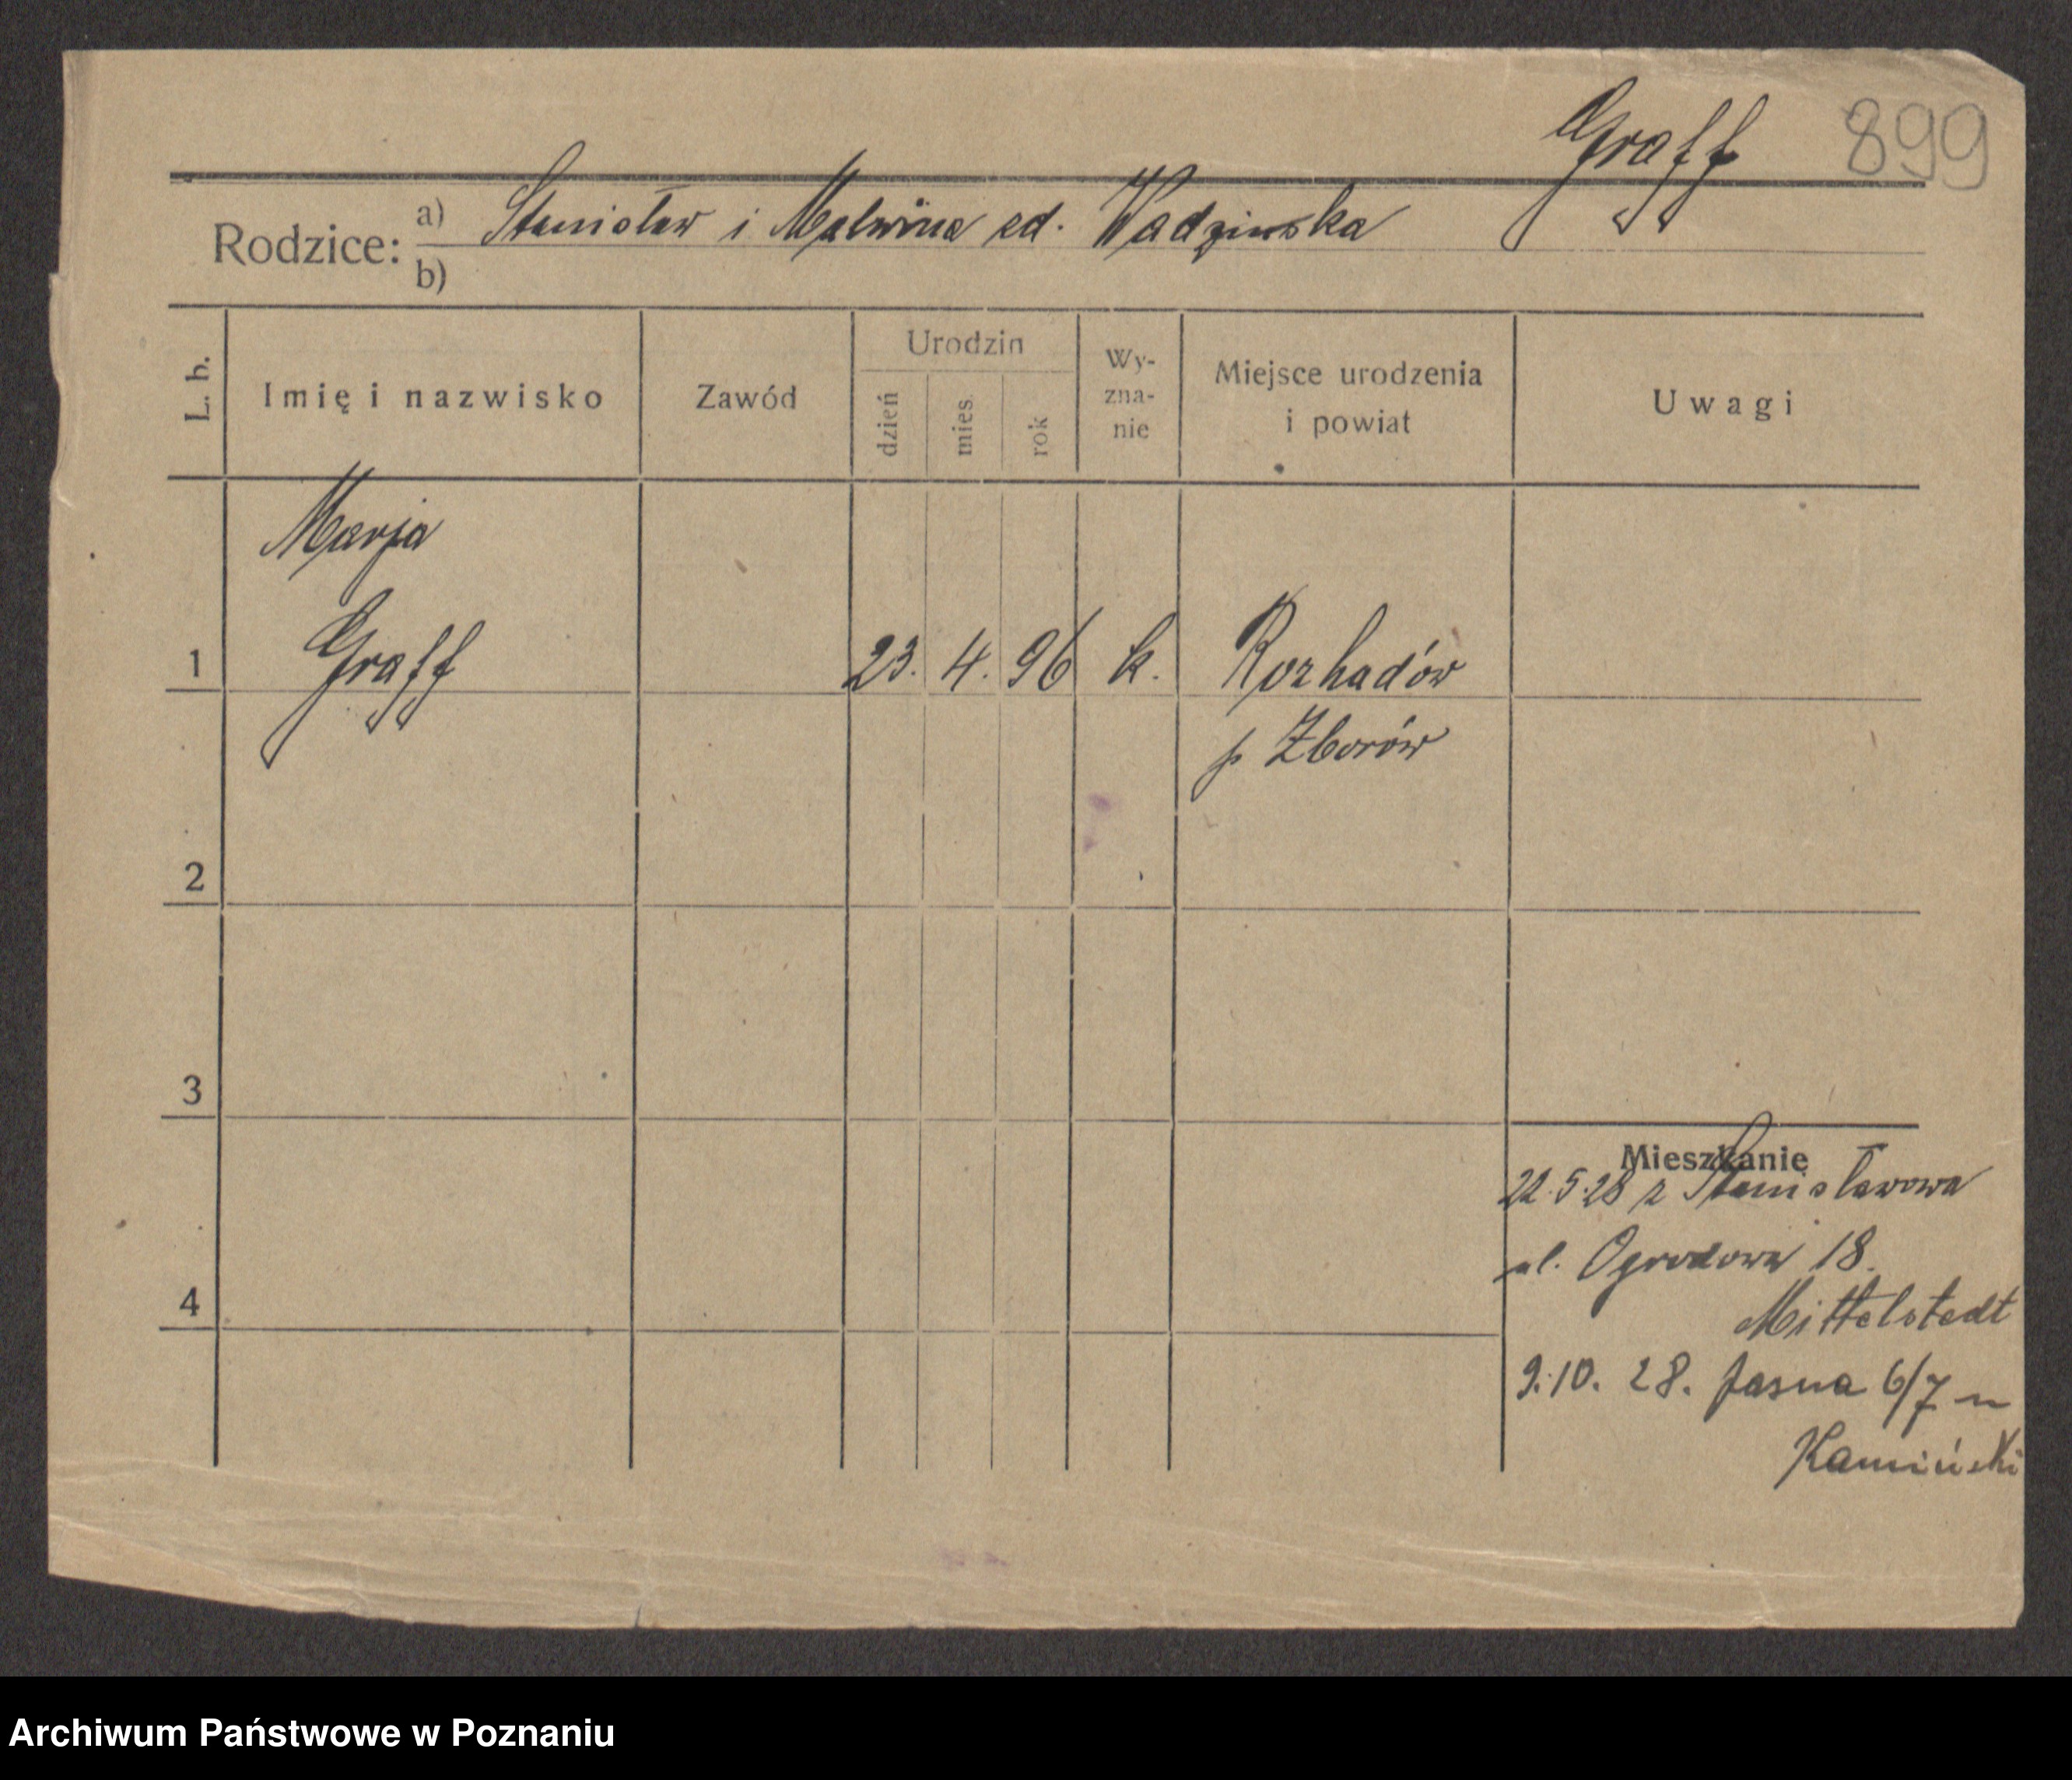 Graff 899
Rodzice: a) Stanisław i Malwina zd. Wadzinska
b)
L. b. Imię i nazwisko Zawód Urodzin dzień mies. rok Wyznanie Miejsce urodzenia i powiat Uwagi
Marja
1 Graff 23. 4. 96 k. Rozhadów
p Zborów
2
3
Mieszkanie
22.5.28 z Stanisławowa
ul. Ogrodowa 18.
4
Mittelstedt
9.10. 28. Jasna 6/7
Kamiński
Archiwum Państwowe w Poznaniu